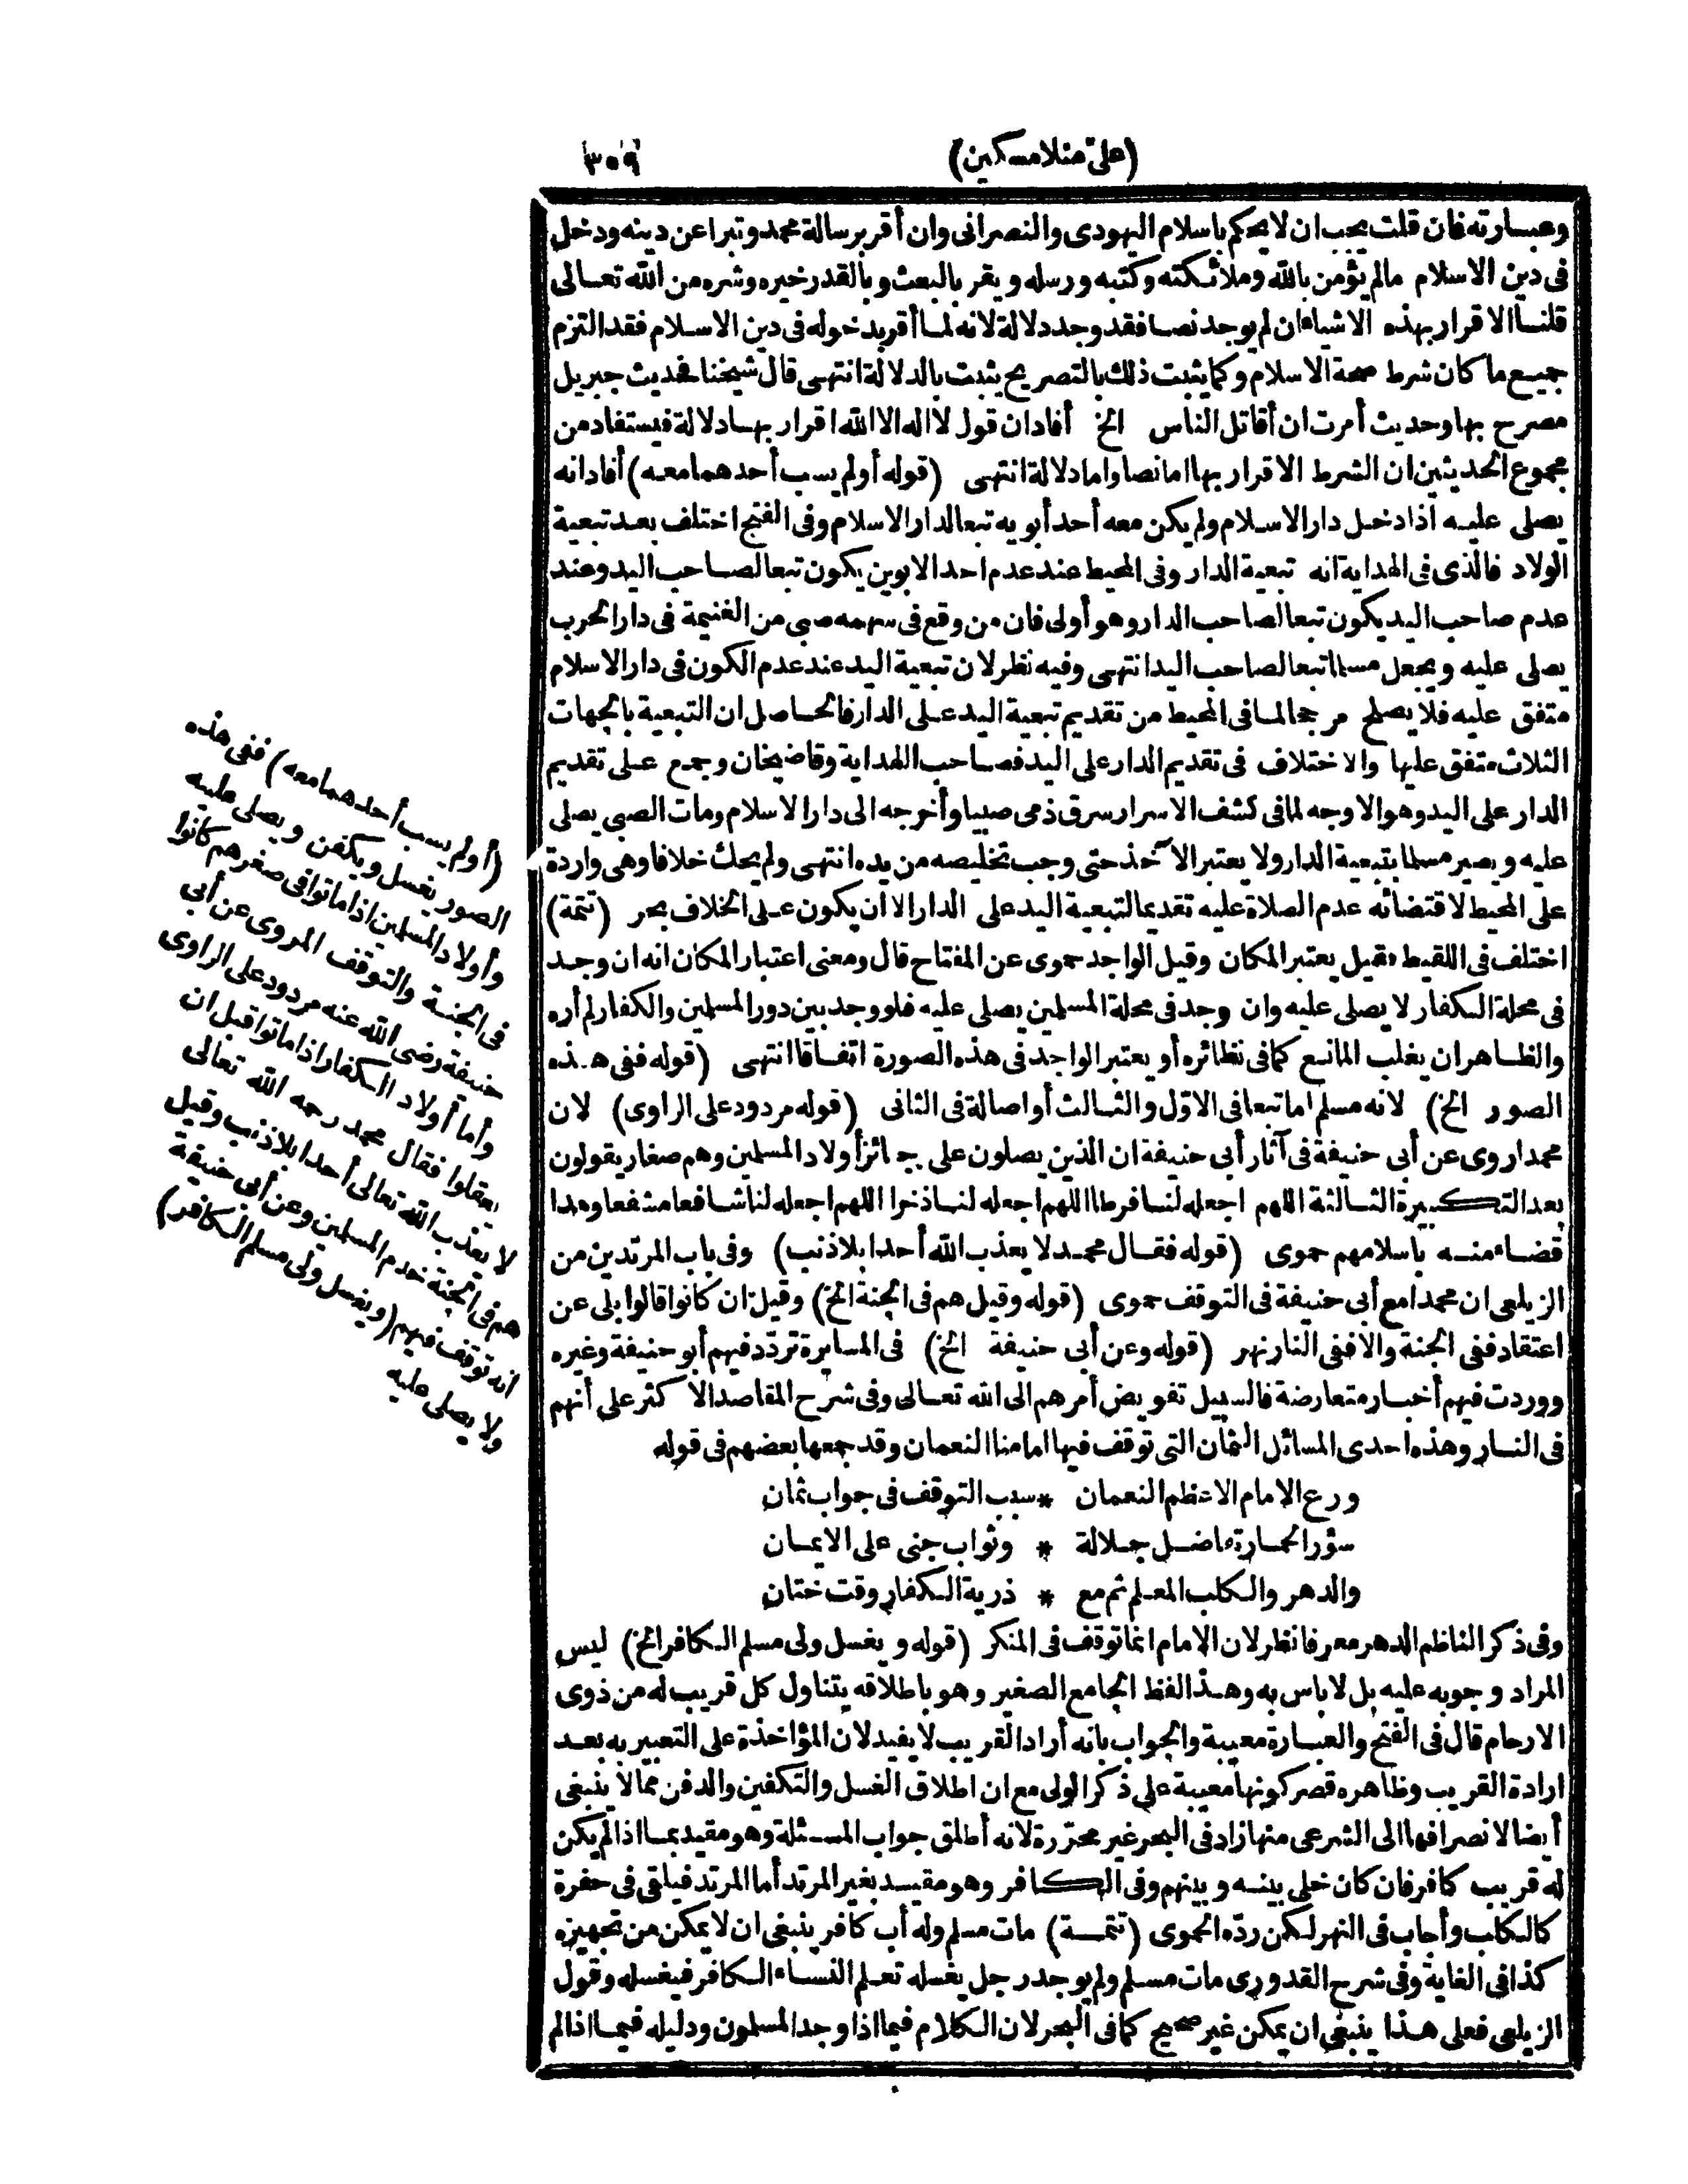 (على منلا مسكين)
٣٠٩
وعبارته فان قلت يجب ان لا يحكم باسلام اليهودى والنصرانى وان أقر برسالة محمد وتبرا عن دينه ودخل
فى دين الاسلام مالم يؤمن بالله وملائكته وكتبه ورسله ويقر بالبعث وبالقدر خيره وشره من الله تعالى
قلنا الاقرار بهذه الاشياء ان لم يوجد نصا فقد وجد دلالة لانه لما أقر بدخوله فى دين الاسلام فقد التزم
جميع ما كان شرط صحة الاسلام وكما يثبت ذلك بالتصريح يثبت بالدلالة انتهى قال شيخنا فحديث جبريل
مصرح بها وحديث أمرت ان أقاتل الناس الخ أفاد ان قول لا اله الا الله اقرار بها دلالة فيستفاد من
مجموع الحديثين ان الشرط الاقرار بها اما نصا واما دلالة انتهى (قوله أو لم يسب أحدهما معه) أفاد انه
يصلى عليه اذا دخل دار الاسلام ولم يكن معه أحد أبويه تبعا لدار الاسلام وفى الفتح اختلف بعد تبعية
الولاد فالذى فى الهداية انه تبعية الدار وفى المحيط عند عدم احد الابوين يكون تبعا لصاحب اليد وعند
عدم صاحب اليد يكون تبعا لصاحب الدار وهو أولى فان من وقع فى سهمه صبى من الغنيمة فى دار الحرب
يصلى عليه ويجعل مسلما تبعا لصاحب اليد انتهى وفيه نظر لان تبعية اليد عند عدم الكون فى دار الاسلام
متفق عليه فلا يصلح مرجحا لما فى المحيط من تقديم تبعية اليد على الدار فالحاصل ان التبعية بالجهات
الثلاث متفق عليها والاختلاف فى تقديم الدار على اليد فصاحب الهداية وقاضيخان وجمع على تقديم
الدار على اليد وهو الاوجه لما فى كشف الاسرار سرق ذمى صبيا وأخرجه الى دار الاسلام ومات الصبى يصلى
عليه ويصير مسلما بتبعية الدار ولا يعتبر الآخذ حتى وجب تخليصه من يده انتهى ولم يحك خلافا وهى واردة
على المحيط لاقتضائه عدم الصلاة عليه تقديما لتبعية اليد على الدار الا ان يكون على الخلاف بحر (تتمة)
اختلف فى اللقيط فقيل يعتبر المكان وقيل الواجد حموى عن المفتاح قال ومعنى اعتبار المكان انه ان وجد
فى محلة الكفار لا يصلى عليه وان وجد فى محلة المسلمين يصلى عليه فلو وجد بين دور المسلمين والكفار لم أره
والظاهر ان يغلب المانع كما فى نظائره أو يعتبر الواجد فى هذه الصورة اتفاقا انتهى (قوله ففى هذه
الصور الخ) لانه مسلم اما تبعا فى الاوّل والثالث أو اصالة فى الثانى (قوله مردود على الراوى) لان
محمدا روى عن أبى حنيفة فى آثار أبى حنيفة ان الذين يصلون على جنائز أولاد المسلمين وهم صغار يقولون
بعد التكبيرة الثالثة اللهم اجعله لنا فرطا اللهم اجعله لنا ذخرا اللهم اجعله لنا شافعا مشفعا وهذا
قضاء منه باسلامهم حموى (قوله فقال محمد لا يعذب الله أحدا بلا ذنب) وفى باب المرتدين من
الزيلعى ان محمدا مع أبى حنيفة فى التوقف حموى (قوله وقيل هم فى الجنة الخ) وقيل ان كانوا قالوا بلى عن
اعتقاد ففى الجنة والا ففى النار نهر (قوله وعن أبى حنيفة الخ) فى المسايرة تردّد فيهم أبو حنيفة وغيره
ووردت فيهم أخبار متعارضة فالسبيل تفويض أمرهم الى الله تعالى وفى شرح المقاصد الاكثر على أنهم
فى النار وهذه احدى المسائل الثمان التى توقف فيها امامنا النعمان وقد جمعها بعضهم فى قوله
ورع الامام الاعظم النعمان * سبب التوقف فى جواب ثمان
سؤر الحمار تفاضل جلالة * وثواب جنى على الايمان
والدهر والكلب المعلم ثم مع * ذرية الكفار وقت ختان
وفى ذكر الناظم الدهر معرفا نظر لان الامام انما توقف فى المنكر (قوله ويغسل ولى مسلم الكافر الخ) ليس
المراد وجوبه عليه بل لا باس به وهذا لفظ الجامع الصغير وهو باطلاقه يتناول كل قريب له من ذوى
الارحام قال فى الفتح والعبارة معيبة والجواب بانه أراد القريب لا يفيد لان المؤاخذة على التعبير به بعد
ارادة القريب وظاهره قصر كونها معيبة على ذكر الولى مع ان اطلاق الغسل والتكفين والدفن مما لا ينبغى
أيضا لانصرافها الى الشرعى منها زاد فى البحر غير محرّرة لانه أطلق جواب المسئلة وهو مقيد بما اذا لم يكن
له قريب كافر فان كان خلى بينه وبينهم وفى الكافر وهو مقيد بغير المرتد أما المرتد فيلقى فى حفرة
كالكلب وأجاب فى النهر لكن ردّه الحموى (تتمة) مات مسلم وله أب كافر ينبغى ان لا يمكن من تجهيزه
كذا فى الغاية وفى شرح القدورى مات مسلم ولم يوجد رجل يغسله تعلم النساء الكافر فيغسله وقول
الزيلعى فعلى هذا ينبغى ان يمكن غير صحيح كما فى البحر لان الكلام فيما اذا وجد المسلمون ودليله فيما اذا لم
(أو لم يسب أحدهما معه) ففى هذه
الصور يغسل ويكفن ويصلى عليه
وأولاد المسلمين اذا ماتوا فى صغرهم كانوا
فى الجنة والتوقف المروى عن أبى
حنيفة رضى الله عنه مردود على الراوى
وأما أولاد الكفار اذا ماتوا قبل ان
يعقلوا فقال محمد رحمه الله تعالى
لا يعذب الله تعالى أحدا بلا ذنب وقيل
هم فى الجنة خدم المسلمين وعن أبى حنيفة
انه توقف فيهم (ويغسل ولى مسلم الكافر)
ولا يصلى عليه